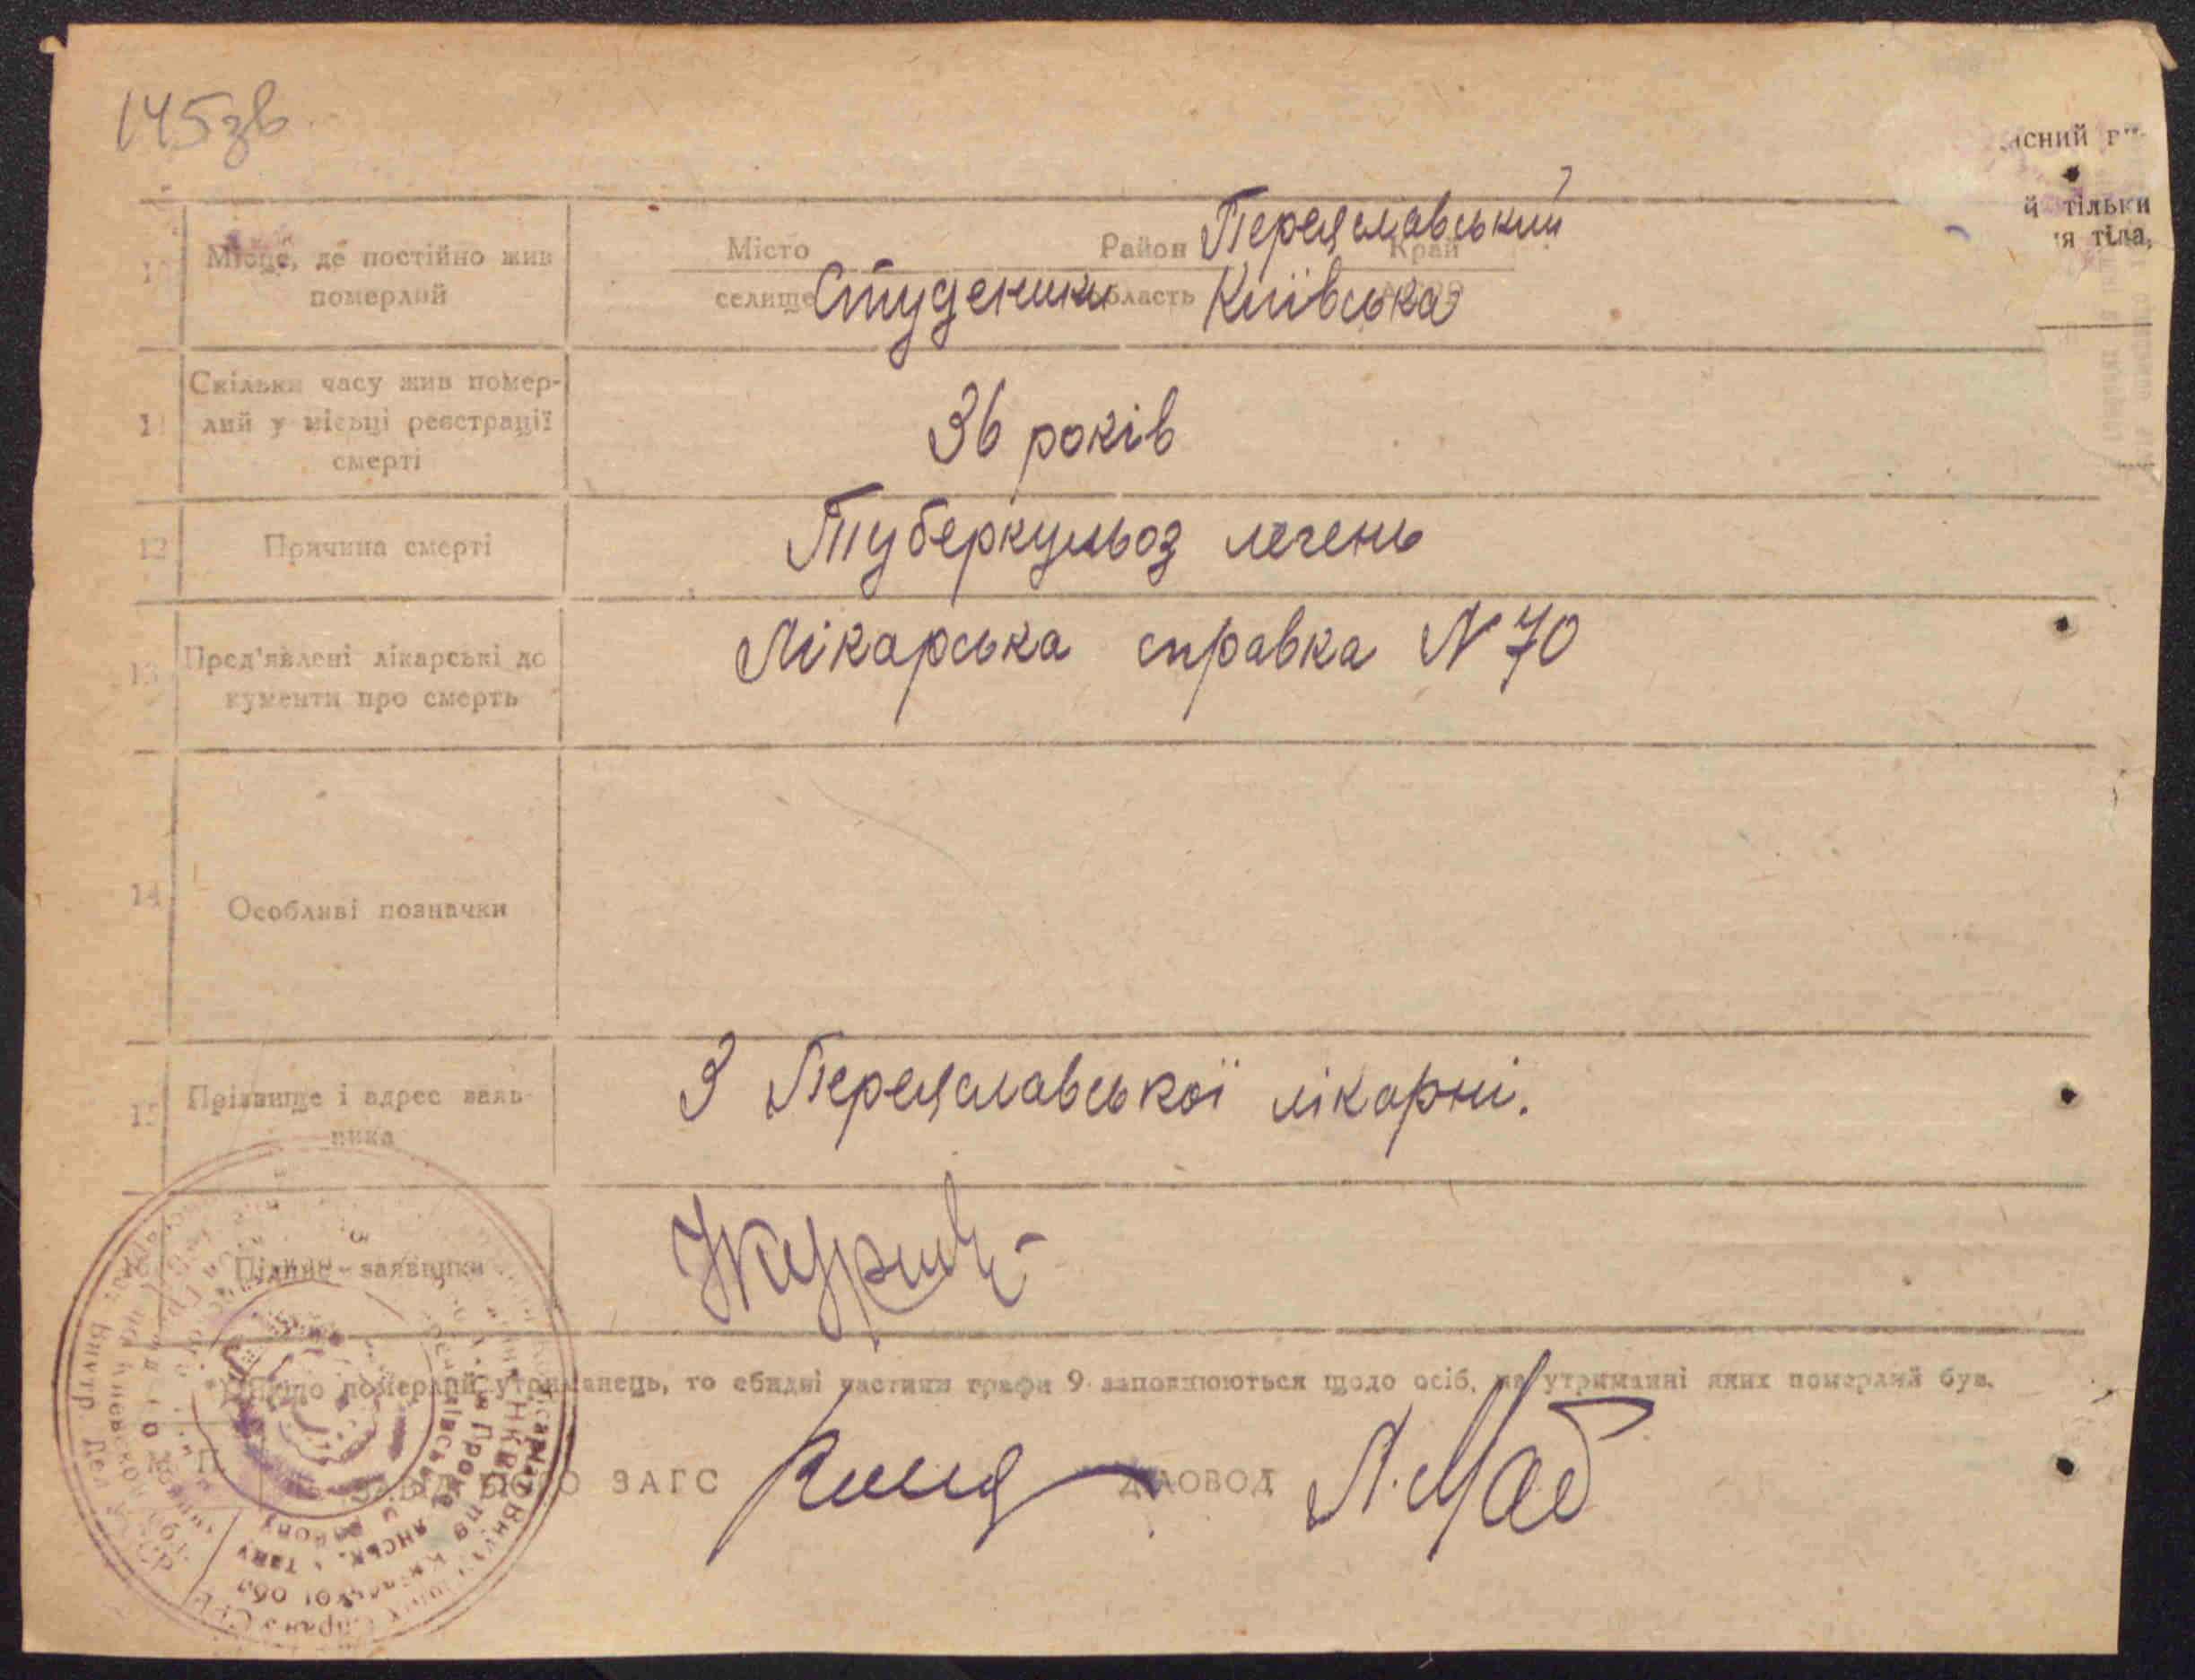 145зв
існий ви-
й тільки
ня тіла,
10 Місце, де постійно жив померлий
Місто Район Переяславський Край
селище Студеники область Київська АСРР
11 Скільки часу жив помер-
лий у місьці реєстрації
смерті
36 років
12 Причина смерті Туберкульоз легень
13 Пред'явлені лікарські до
кументи про смерть
Лікарська справка N 70
14 Особливі позначки
15 Прізвище і адрес заяв-
ника
З Переяславської лікарні.
16 Підпис заявника
Якщо померлий утриманець, то єбидві частини графи 9 заповнюються щодо осіб, на утриманні яких померлий був.
М. П.
ЗАВ. БЮРО ЗАГС ДІЛОВОД